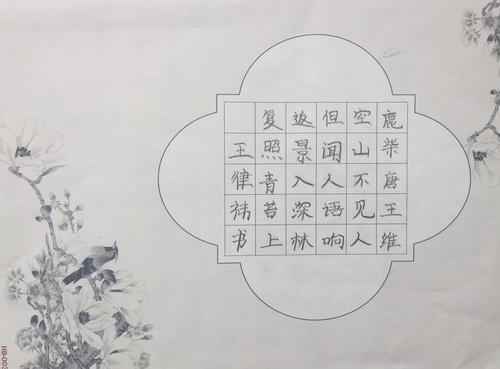 鹿柴唐王维
空山不见人
但闻人语响
返景入深林
复照青苔上
王律祎书